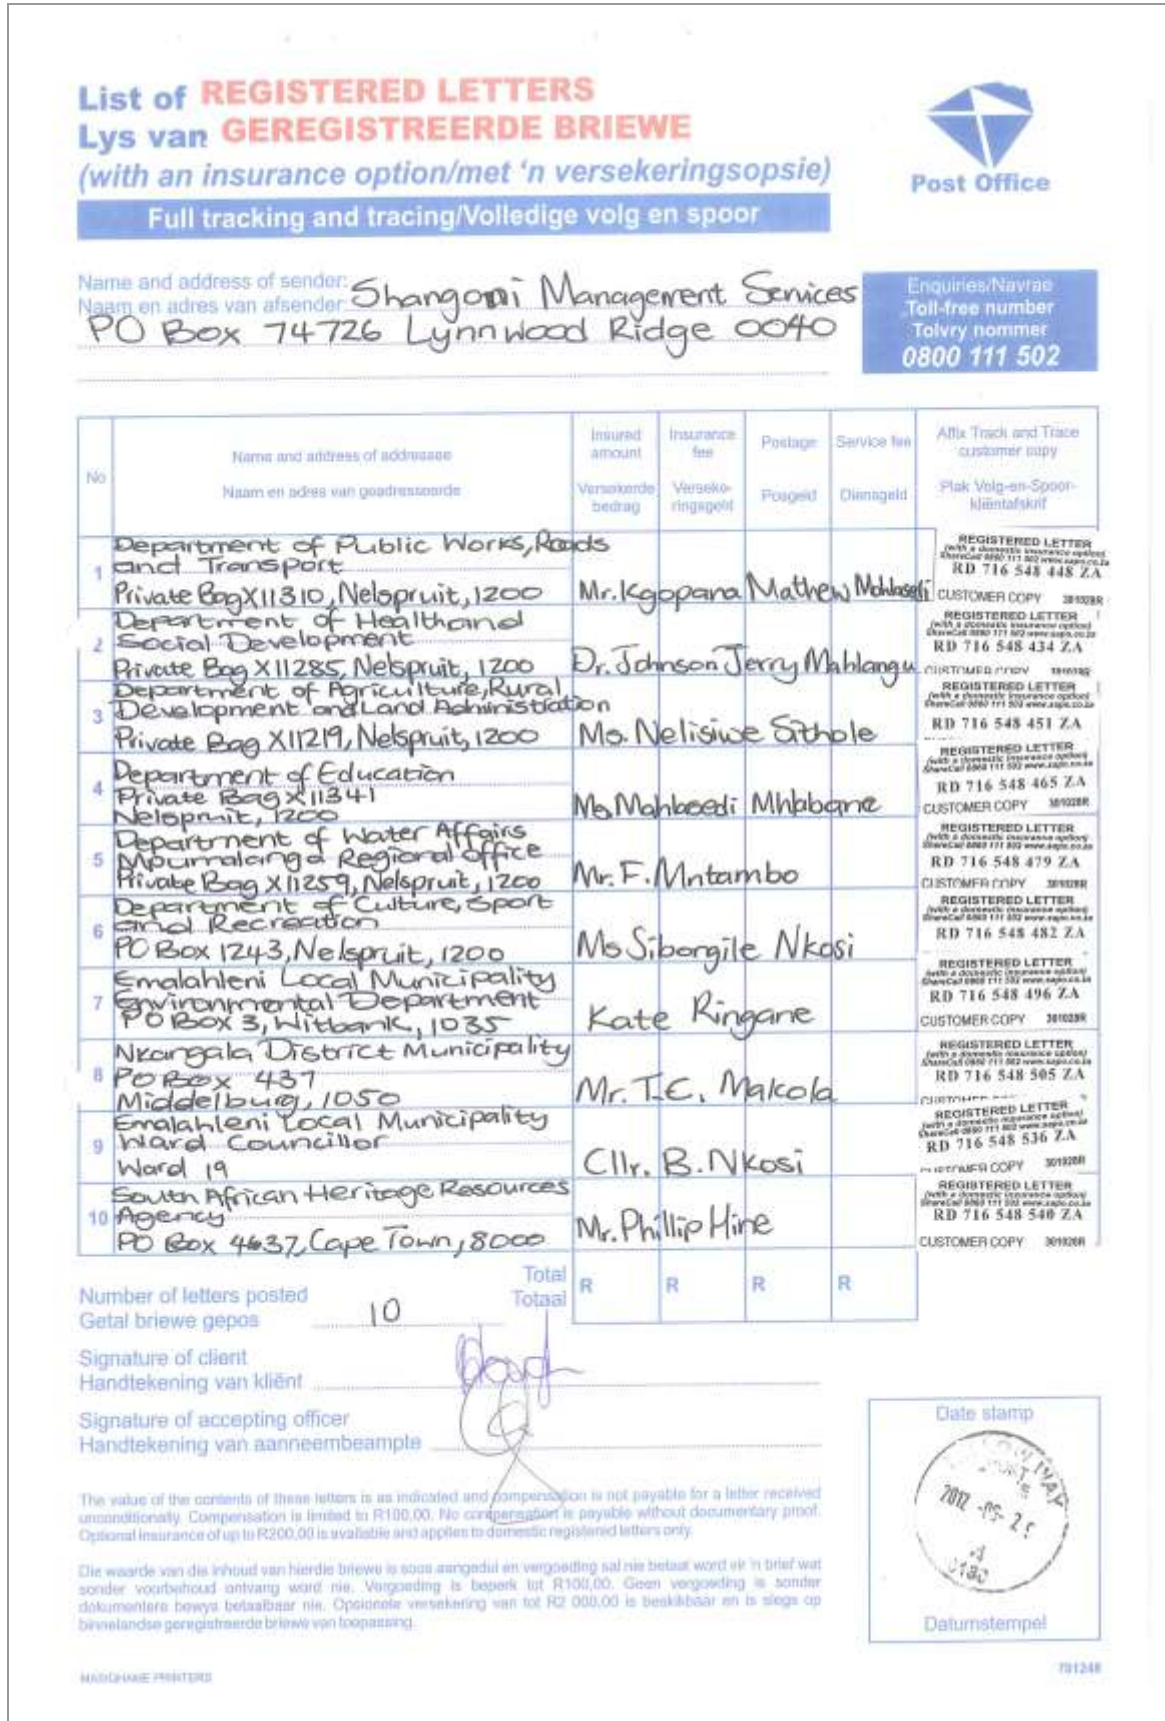 List of REGISTERED LETTERS
Lys van GEREGISTREERDE BRIEWE
(with an insurance option/met 'n versekeringsopsie)
Full tracking and tracing/Volledige volg en spoor
Post Office
Name and address of sender:
Naam en adres van afsender: Shangoni Management Services
PO Box 74726 Lynnwood Ridge 0040
Enquiries/Navrae
Toll-free number
Tolvry nommer
0800 111 502
No
Name and address of addressee
Naam en adres van geadresseerde
Insured amount
Versekerde bedrag
Insurance fee
Verseke-ringsgeld
Postage
Posgeld
Service fee
Diensgeld
Affix Track and Trace customer copy
Plak Volg-en-Spoor-kliëntafskrif
1
Department of Public Works, Roads
and Transport
Private Bag X11310, Nelspruit, 1200
Mr. Kgopana Mathew
REGISTERED LETTER
(with a domestic insurance option)
ShareCall 0860 111 502 www.sapo.co.za
RD 716 548 448 ZA
CUSTOMER COPY 301028R
2
Department of Health and
Social Development
Private Bag X11285, Nelspruit, 1200
Dr. Johnson Jerry Mahlangu
REGISTERED LETTER
(with a domestic insurance option)
ShareCall 0860 111 502 www.sapo.co.za
RD 716 548 434 ZA
CUSTOMER COPY 301028R
3
Department of Agriculture, Rural
Development and Land Administration
Private Bag X11219, Nelspruit, 1200
Ms. Nelisiwe Sithole
REGISTERED LETTER
(with a domestic insurance option)
ShareCall 0860 111 502 www.sapo.co.za
RD 716 548 451 ZA
4
Department of Education
Private Bag X11341
Nelspruit, 1200
Ms. Mahlasedi Mhlabane
REGISTERED LETTER
(with a domestic insurance option)
ShareCall 0860 111 502 www.sapo.co.za
RD 716 548 465 ZA
CUSTOMER COPY 301028R
5
Department of Water Affairs
Mpumalanga Regional Office
Private Bag X11259, Nelspruit, 1200
Mr. F. Mntambo
REGISTERED LETTER
(with a domestic insurance option)
ShareCall 0860 111 502 www.sapo.co.za
RD 716 548 479 ZA
CUSTOMER COPY 301028R
6
Department of Culture, Sport
and Recreation
PO Box 1243, Nelspruit, 1200
Ms Sibongile Nkosi
REGISTERED LETTER
(with a domestic insurance option)
ShareCall 0860 111 502 www.sapo.co.za
RD 716 548 482 ZA
7
Emalahleni Local Municipality
Environmental Department
PO Box 3, Witbank, 1035
Kate Ringane
REGISTERED LETTER
(with a domestic insurance option)
ShareCall 0860 111 502 www.sapo.co.za
RD 716 548 496 ZA
CUSTOMER COPY 301028R
8
Nkangala District Municipality
PO Box 437
Middelburg, 1050
Mr. T.C. Makola
REGISTERED LETTER
(with a domestic insurance option)
ShareCall 0860 111 502 www.sapo.co.za
RD 716 548 505 ZA
9
Emalahleni Local Municipality
Ward Councillor
Ward 19
Cllr. B. Nkosi
REGISTERED LETTER
(with a domestic insurance option)
ShareCall 0860 111 502 www.sapo.co.za
RD 716 548 536 ZA
CUSTOMER COPY 301028R
10
South African Heritage Resources
Agency
PO Box 4637, Cape Town, 8000
Mr. Phillip Hine
REGISTERED LETTER
(with a domestic insurance option)
ShareCall 0860 111 502 www.sapo.co.za
RD 716 548 540 ZA
CUSTOMER COPY 301028R
Total
Totaal
R R R R
Number of letters posted
Getal briewe gepos 10
Signature of client
Handtekening van kliënt
Signature of accepting officer
Handtekening van aanneembeampte
Date stamp
2012 -05- 2
Datumstempel
The value of the contents of these letters is as indicated and compensation is not payable for a letter received
unconditionally. Compensation is limited to R100,00. No compensation is payable without documentary proof.
Optional insurance of up to R200,00 is available and applies to domestic registered letters only.
Die waarde van die inhoud van hierdie briewe is soos aangedui en vergoeding sal nie betaal word vir 'n brief wat
sonder voorbehoud ontvang word nie. Vergoeding is beperk tot R100,00. Geen vergoeding is sonder
dokumentêre bewys betaalbaar nie. Opsionele versekering van tot R2 000,00 is beskikbaar en is slegs op
binnelandse geregistreerde briewe van toepassing.
MASIQHAME PRINTERS
701248